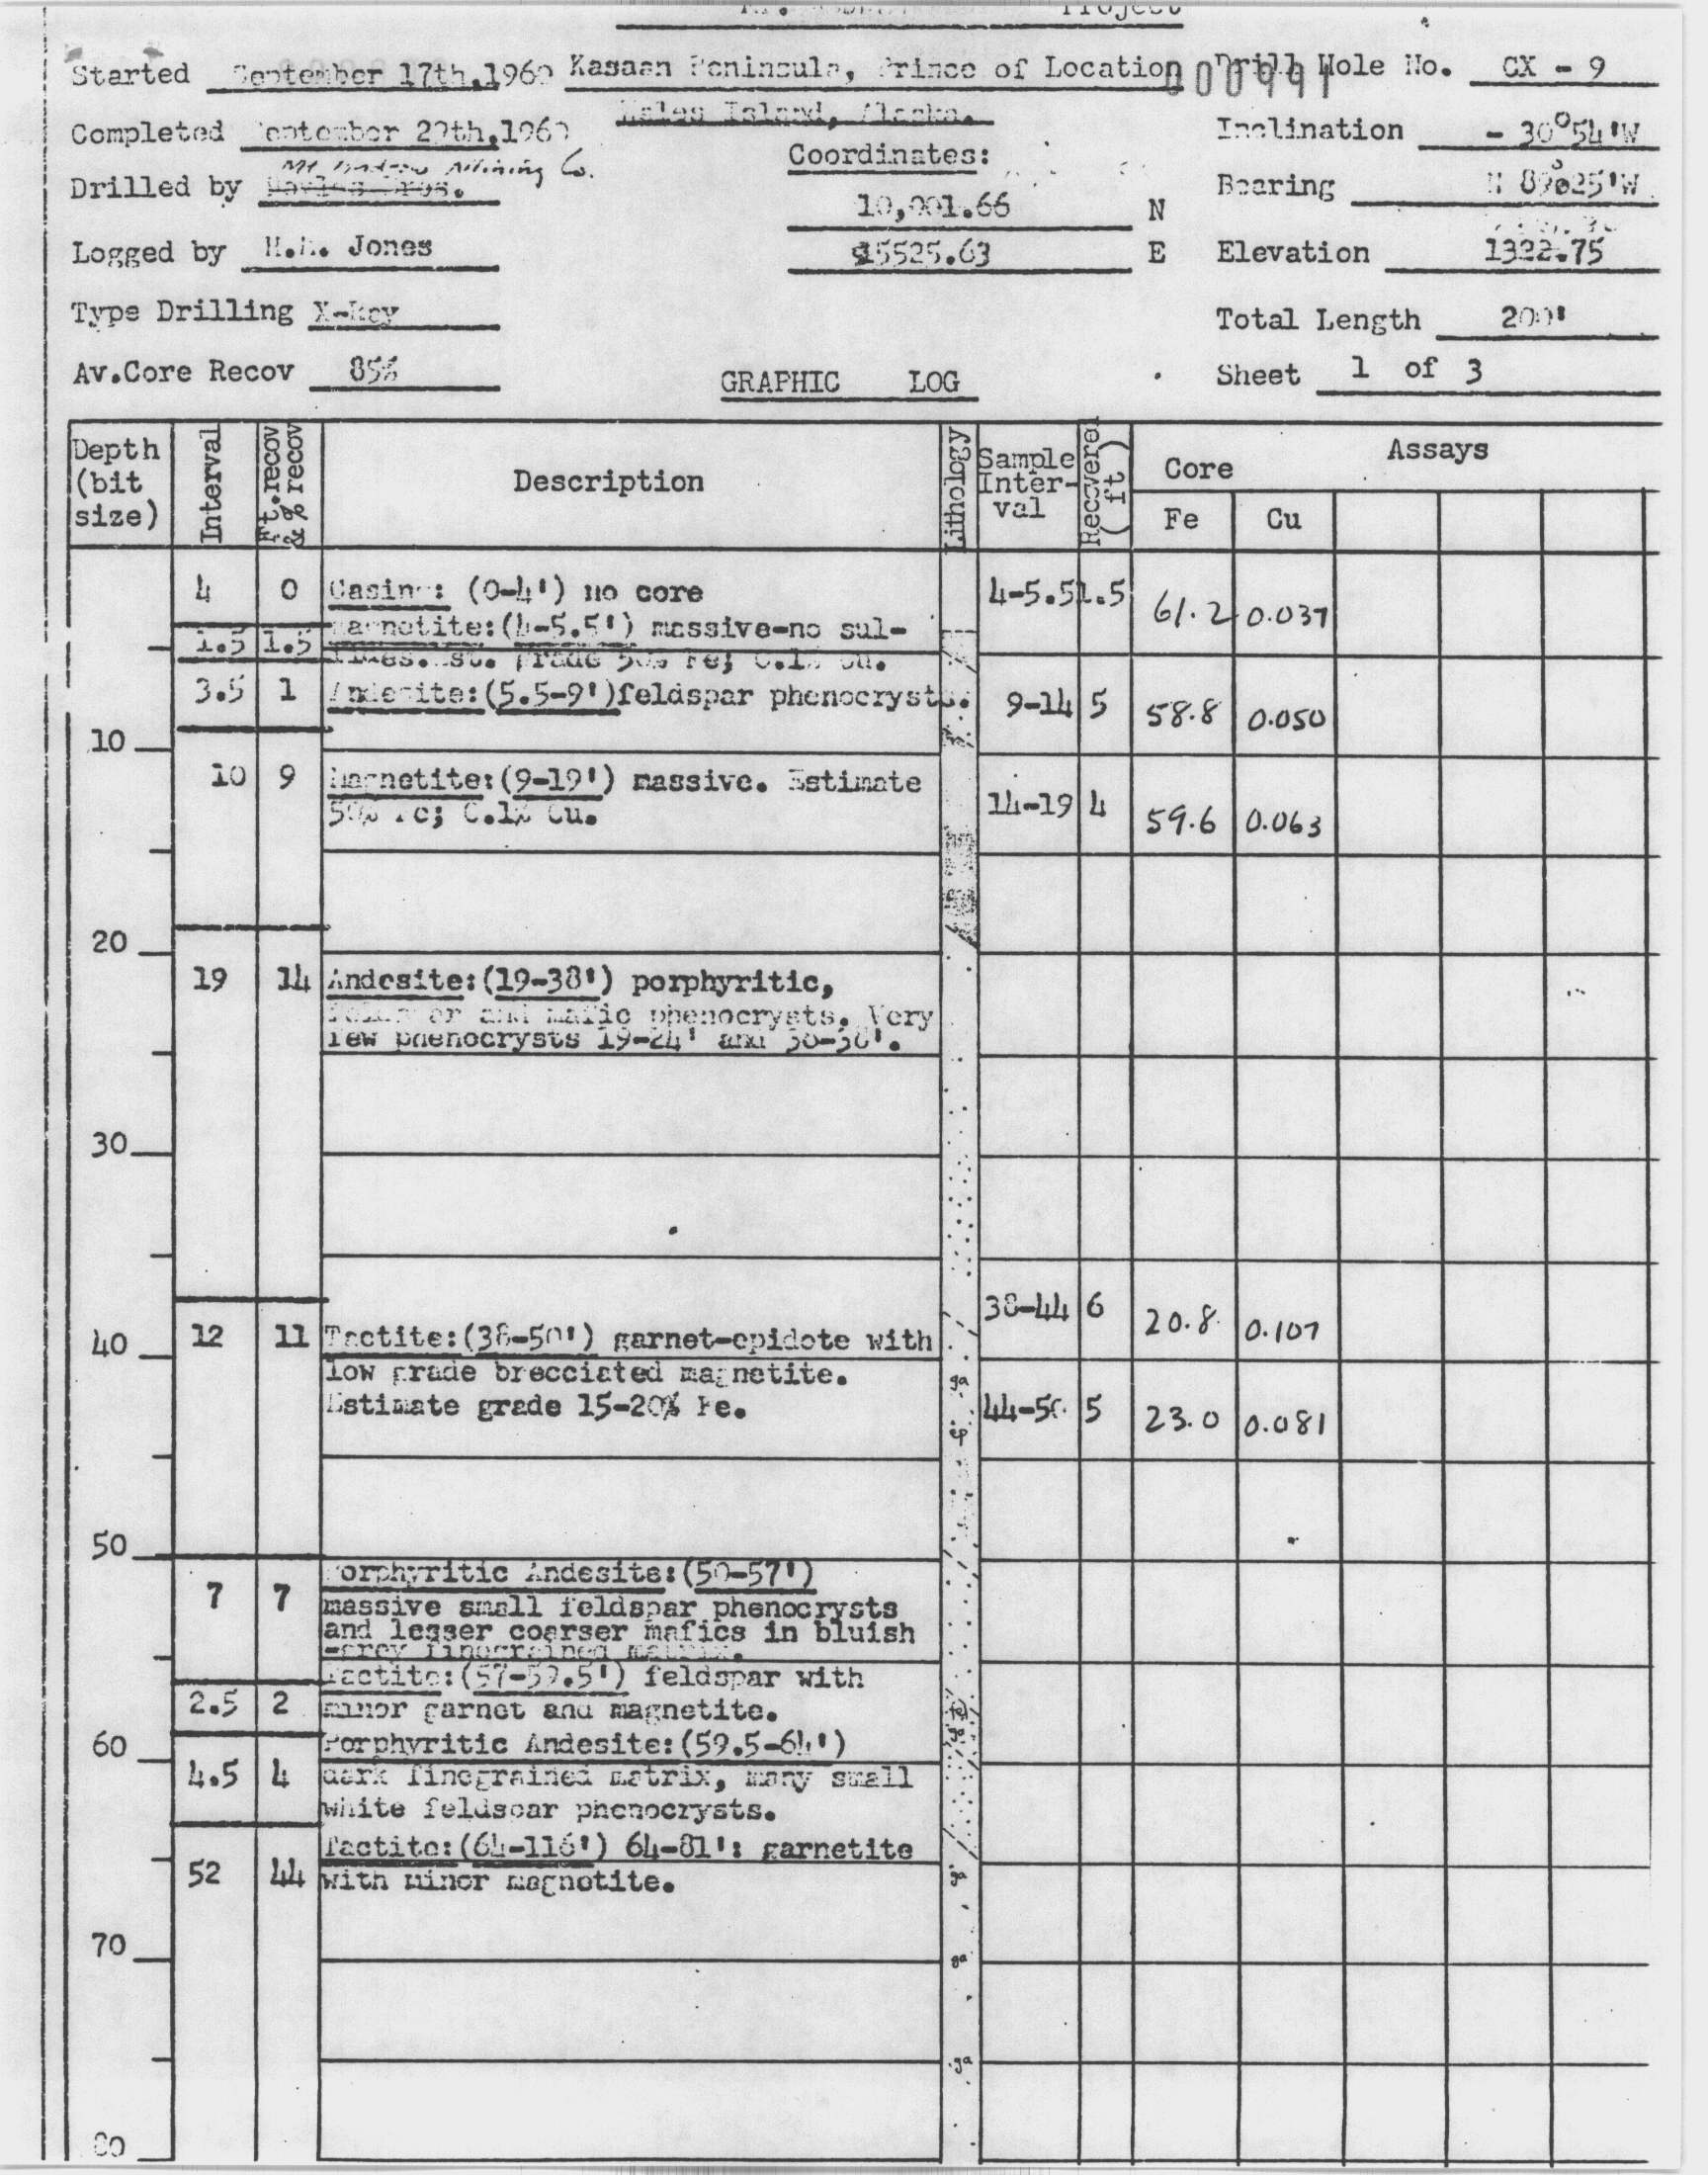 Project
Started September 17th, 196 Kasaan Peninsula, Prince of Location Drill Hole No. CX - 9
000991
Wales Island, Alaska.
Completed September 29th, 196 Inclination - 30°54'W
Coordinates:
Mining Co.
Drilled by Bearing N 89°25'W
10,001.66 N
Logged by Jones 15525.63 E Elevation 1322.75
Type Drilling X-Ray Total Length 200'
Av.Core Recov 85% GRAPHIC LOG Sheet 1 of 3
Depth (bit size) Interval Ft.recov & % recov Description Lithology Sample Inter-val Recovered (ft) Core Assays
Fe Cu
4 0 Casing: (0-4') no core 4-5.5 1.5 61.2 0.037
1.5 1.5 Magnetite:(4-5.5') massive-no sul-
fides. Est. grade 50% Fe; 0.1% Cu.
3.5 1 Andesite:(5.5-9')feldspar phenocrysts. 9-14 5 58.8 0.050
10
10 9 Magnetite:(9-19') massive. Estimate 14-19 4 59.6 0.063
50% Fe; 0.1% Cu.
20
19 14 Andesite:(19-38') porphyritic,
feldspar and mafic phenocrysts. Very
few phenocrysts 19-24' and
30
38-44 6 20.8 0.107
40 12 11 Tactite:(38-50') garnet-epidote with
low grade brecciated magnetite. ga
Estimate grade 15-20% Fe. 44-50 5 23.0 0.081
ep
50
Porphyritic Andesite:(50-57')
7 7 massive small feldspar phenocrysts
and lesser coarser mafics in bluish
-grey finegrained matrix.
Tactite:(57-59.5') feldspar with
2.5 2 minor garnet and magnetite.
60 Porphyritic Andesite:(59.5-64')
4.5 4 dark finegrained matrix, many small
white feldspar phenocrysts.
Tactite:(64-116') 64-81': garnetite
52 44 with minor magnetite. ga
70 ga
ga
80